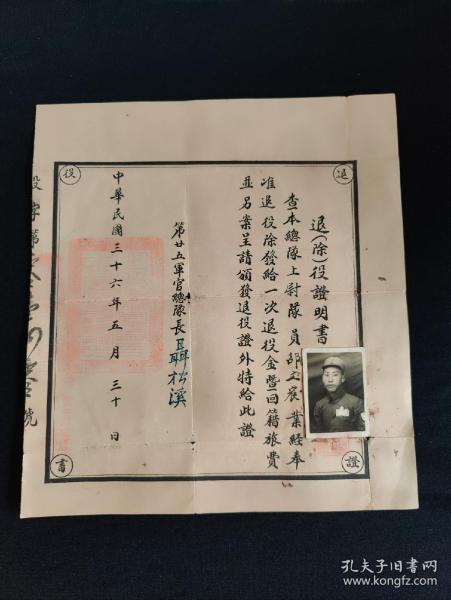 退
役
證
書
退(除)役證明書
查本總隊上尉隊員邵文展業經奉
准退役除發給一次退役金暨回籍旅費
並另案呈請頒發退役證外特給此證
第廿五軍官總隊長聶松溪
中華民國三十六年五月三十日
役字第 號
孔夫子旧书网
www.kongfz.com